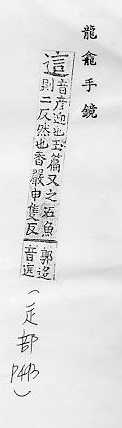 龍龕手鏡
這
音彥迎也玉篇又之石魚
則二反然也香嚴申隻反
郭迻
音
(辵部
P493)